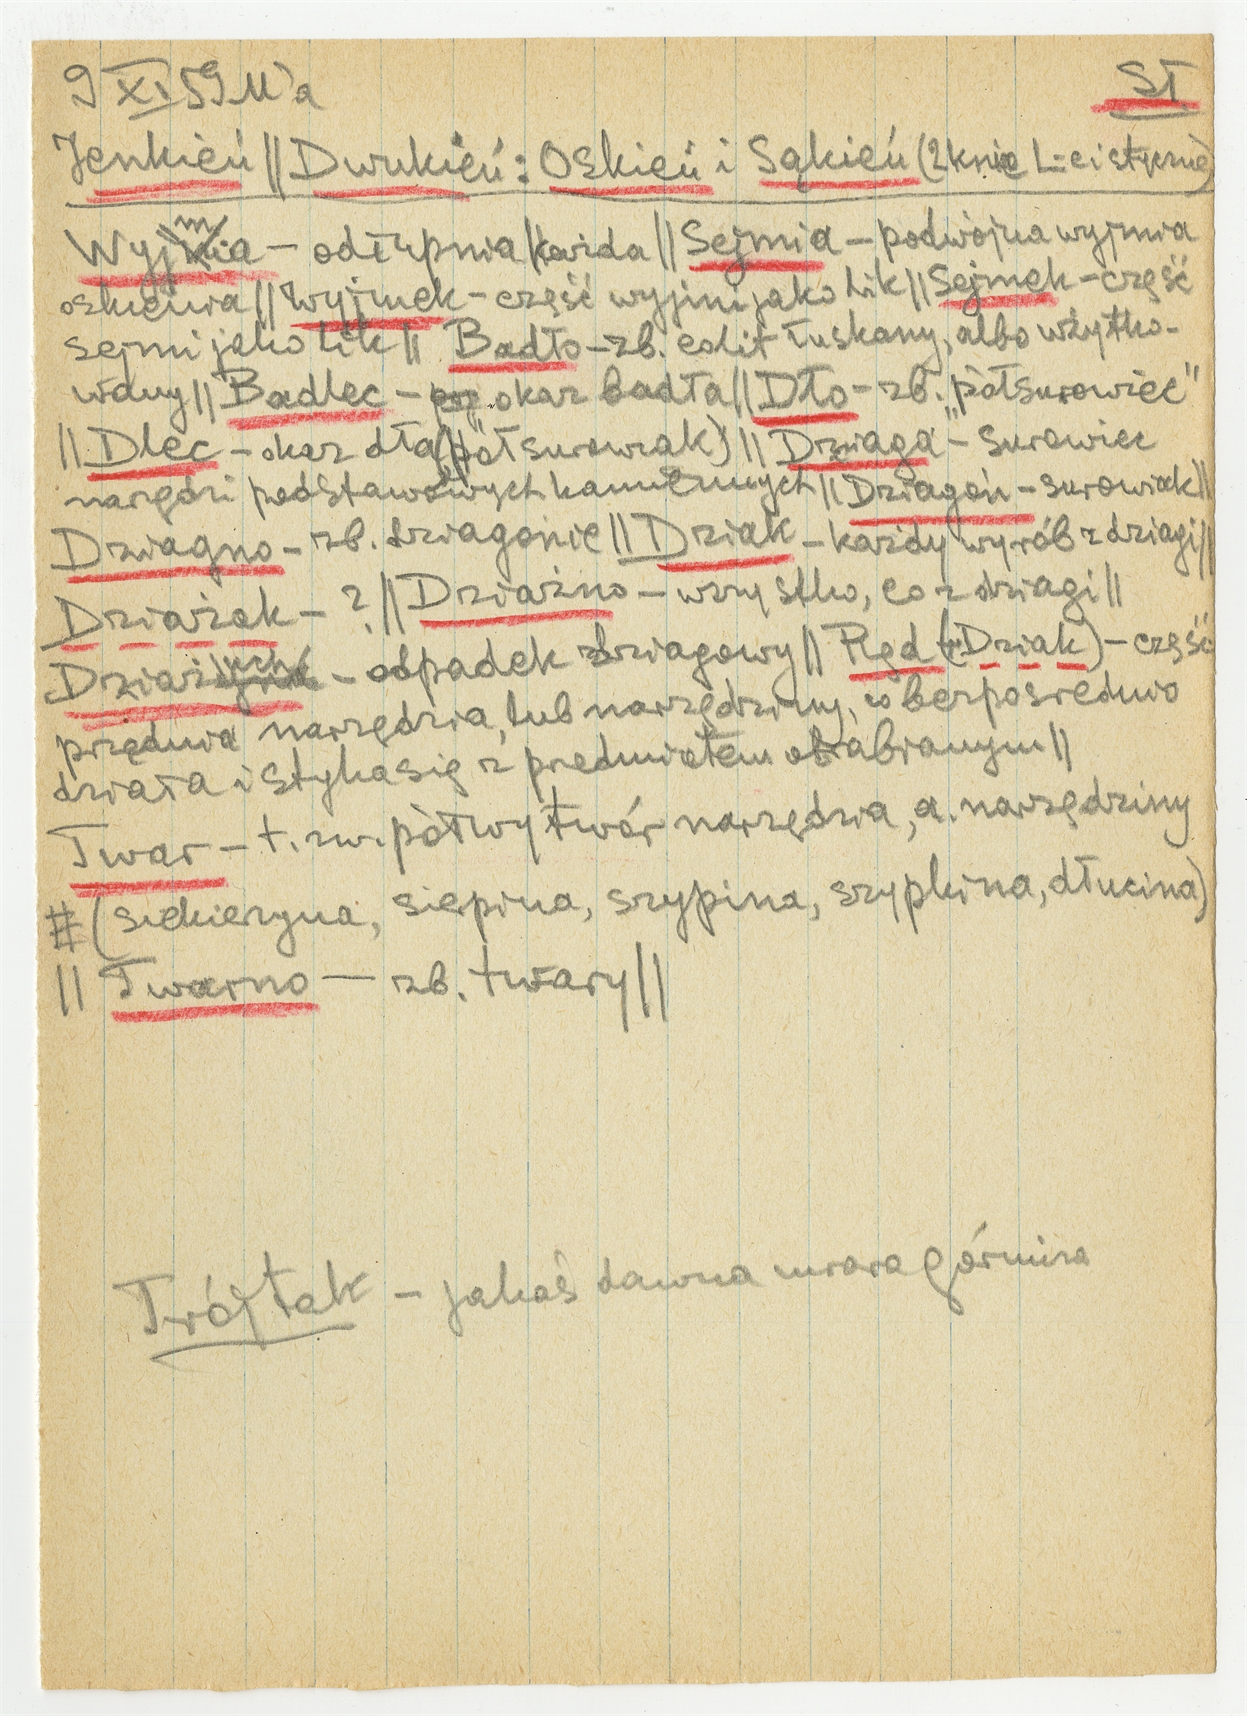 9 XI 59 W'a ST
Jenkień || Dwukień: Oskień i Sąkień (2 knie L=ei stycznie)
Wyjmia – odłupnia każda || Sejmia – podwójna wyjmia
oskieńwa || Wyjmek – część wyjmi jako lik || Sejmek – część
sejmi jako lik || Badło – zb. eolit łuskany, albo użytko-
wany || Badlec – okaz badła || Dło – zb. "półsurowiec"
|| Dlec – okaz dła ("półsurowiak") || Dziaga – surowiec
narzędzi podstawowych kamiennych || Dziagoń – surowiak ||
Dziagno – zb. dziagonie || Dziak – każdy wyrób z dziagi ||
Dziażak – ? || Dziażno – wszystko, co z dziagi ||
Dziażuchć – odpadek dziagowy || Pląd (+Dziak) – część
przednia narzędzia, lub narzędziny, co bezpośrednio
działa i styka się z przedmiotem obrabianym ||
Twar – t. zw. półwytwór narzędzia, a. narzędziny
# (siekierzyna, sierpina, szypina, szypkina, dłucina)
|| Twarno – zb. twary ||
Trójtak – jakaś dawna miara górnicza